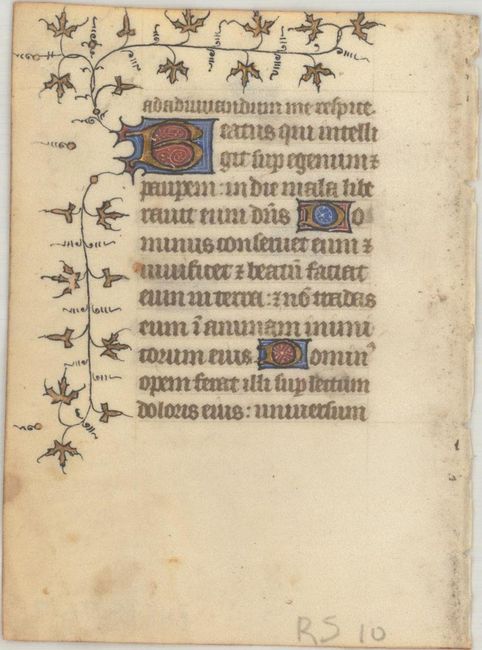 ad adiuvandum me respice.
Beatus qui intelli
git sup egenum ⁊
paupem: in die mala libe
rauit eum dn̄s Do
minus conseruet eum ⁊
uiuificet ⁊ beatū faciat
eum in terra: ⁊ nō tradas
eum ī animam inimi
corum eius Domin⁹
opem ferat illi sup lectum
doloris eius: uniuersum
RS 10